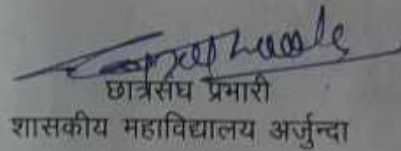 छात्रसंघ प्रभारी
शासकीय महाविद्यालय अर्जुन्दा